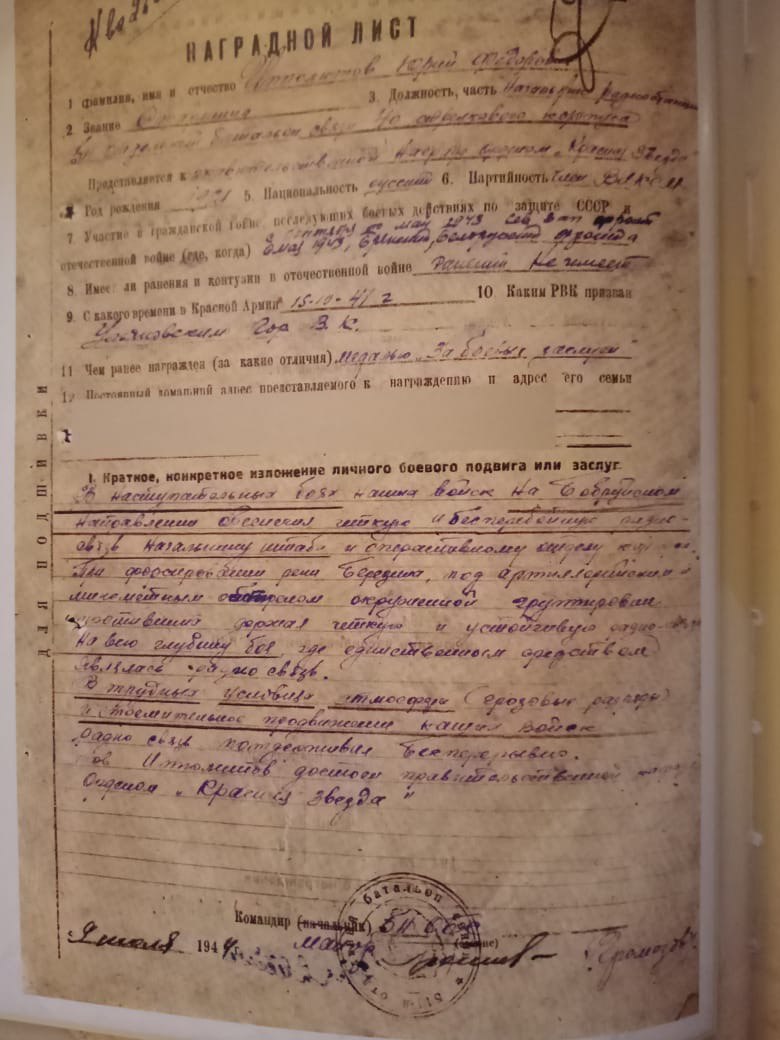 НАГРАДНОЙ ЛИСТ
1 Фамилия, имя и отчество Ипполитов Юрий Федорович
2 Звание Старшина 3. Должность, часть Начальник радиостанции
отдельный батальон связи стрелкового корпуса
Представляется к правительственной награде орденом „Красная Звезда"
Год рождения 1921 5. Национальность русский 6. Партийность Член ВЛКСМ
7 Участие в гражданской войне, последующих боевых действиях по защите СССР и
отечественной войне (где, когда) май 1943 фронт
8. Имеет ли ранения и контузии в отечественной войне Ранений Не имеет
9. С какого времени в Красной Армии 15-10-41 г 10. Каким РВК призван
Гор В.К.
11 Чем ранее награжден (за какие отличия) медалью „За боевые заслуги"
12 Постоянный домашний адрес представляемого к награждению и адрес его семьи
ДЛЯ ПОДШИВКИ
I. Краткое, конкретное изложение личного боевого подвига или заслуг.
В наступательных боях наших войск на Бобруйском
направлении обеспечил четкую и бесперебойную радио-
связь начальнику штаба и оперативному отделу
При форсировании реки Березина, под артиллерийским и
минометным обстрелом окруженной группировки
противника держал четкую и устойчивую радио-
На всю глубину боя, где единственным средством
являлась радио связь.
В трудных условиях атмосферы (грозовые разряды)
и стремительное продвижение наших войск
радио связь поддерживал бесперерывно.
тов Ипполитов достоин правительственной
Орденом „Красная Звезда"
Командир (начальник) 511
9 июля 1944 г. майор Громозов
батальон